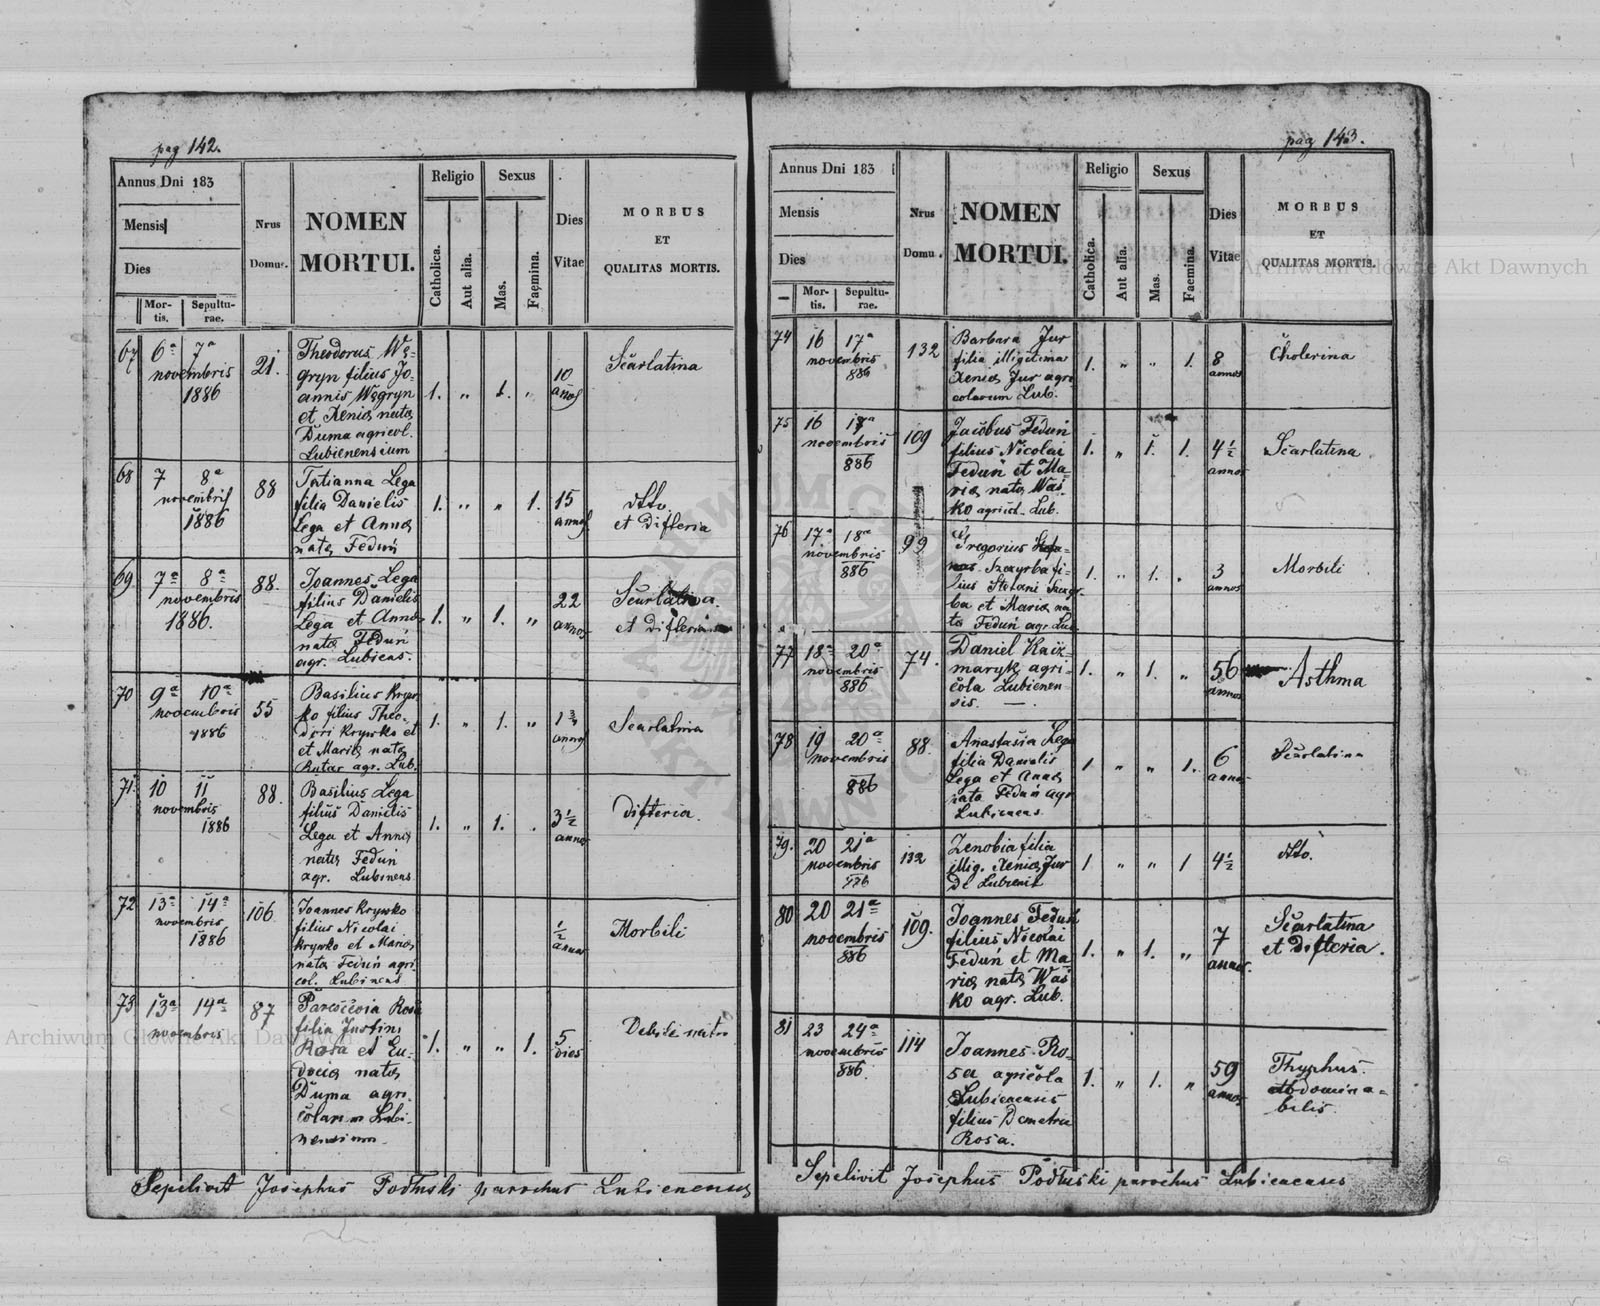 pag 142.
Annus Dni 183
Mensis
Dies
Mor-
tis.
Sepultu-
rae.
Nrus
Domus.
NOMEN
MORTUI.
Religio
Catholica.
Aut alia.
Sexus
Mas.
Faemina.
Dies
Vitae
MORBUS
ET
QUALITAS MORTIS.
67 6a 7a
novembris
1886
21.
Theodorus Wę-
gryn filius Jo-
annis Węgryn
et Xenia nata
Duma agricol.
Lubienensium
1. " 1. "
10
annos
Scarlatina
68 7 8a
novembris
1886
88
Tatianna Lega
filia Danielis
Lega et Anna
nata Feduń
1. " " 1.
15
annos
dtto.
et Difteria
69 7a 8a
novembris
1886.
88.
Joannes Lega
filius Danielis
Lega et Anna
nata Feduń
agr. Lubiens.
1. " 1. "
22
annos
Scarlatina
et Difteria
70 9a 10a
novembris
1886
55
Basilius Krywko
filius Theo-
dori Krywko et
et Maria nata
Rutar agr. Lub.
1. " 1. "
1 3/4
annos
Scarlatina
71. 10 11
novembris
1886
88.
Basilius Lega
filius Danielis
Lega et Anna
nata Feduń
agr. Lubinens
1. " 1. .
3 1/2
annos
Difteria.
72 13a 14a
novembris
1886
106
Joannes Krywko
filius Nicolai
Krywko et Maria
nata Feduń agri
col. Lubinens
1/2
annus
Morbili
73 13a 14a
novembris
87
Parascevia Rosa
filia Justini
Rosa et Eu-
docia nata
Duma agri-
colarum Lubi-
nensium
1. " " 1.
5
dies
Debile nata
Sepelivit Josephus Podłuski parochus Lubienensis
pag 143.
Annus Dni 183
Mensis
Dies
Mor-
tis.
Sepultu-
rae.
Nrus
Domus.
NOMEN
MORTUI.
Religio
Catholica.
Aut alia.
Sexus
Mas.
Faemina.
Dies
Vitae
MORBUS
ET
QUALITAS MORTIS.
74 16 17a
novembris
886
132
Barbara Jur
filia illigitima
Xenia Jur agri
colarum Lub.
1. " " 1.
8
annos
Cholerina
75 16 17a
novembris
886
109
Jacobus Feduń
filius Nicolai
Feduń et Ma-
ria nata Waś
ko agricl. Lub.
1. " 1. 1.
4 1/2
annos
Scarlatina
76 17a 18a
novembris
886
99
Gregorius
Szczyrba fi-
lius Stefani Szczyr-
ba et Maria na
ta Feduń agr. Lub
1. " 1. "
3
annos
Morbili
77 18a 20a
novembris
886
74.
Daniel Kaiz-
maryk agri-
cola Lubienen-
sis. — .
1. " 1. "
56
annos
Asthma
78 19 20a
novembris
886
88.
Anastasia Lega
filia Danielis
Lega et Anna
nata Feduń agr
Lubienens
1 " " 1.
6
annos
Scarlatina
79. 20 21a
novembris
132
Zenobia filia
illig. Xenia Jur
de Lubienie
1 " " 1
4 1/2
dtto.
80 20 21a
novembris
886
109.
Joannes Feduń
filius Nicolai
Feduń et Ma
ria nata Waś
ko agr. Lub.
1. " 1. "
7
annos.
Scarlatina
et Difteria.
81 23 24a
novembris
886.
114
Joannes Ro-
sa agricola
Lubienensis
filius Demetrii
Rosa.
1. " 1. "
59
annos
Thyphus
abdomina-
bilis
Sepelivit Josephus Podłuski parochus Lubienensis
Archiwum Główne Akt Dawnych
Archiwum Główne Akt Dawnych